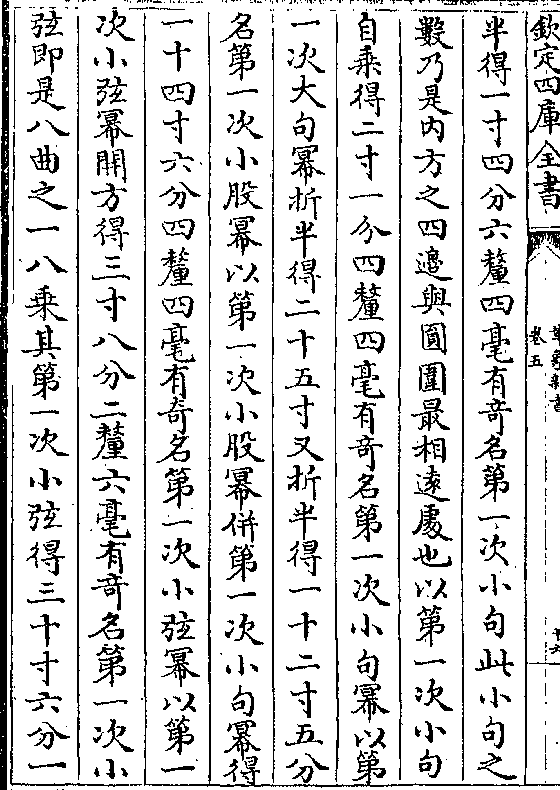 欽定四庫全書
卷五
半得一寸四分六釐四毫有竒名第一次小句此小句之
數乃是内方之四邉與圓圍最相逺處也以第一次小句
自乘得二寸一分四釐四毫有竒名第一次小句冪以第
一次大句冪折半得二十五寸又折半得一十二寸五分
名第一次小股冪以第一次小股冪併第一次小句冪得
一十四寸六分四釐四毫有竒名第一次小弦冪以第一
次小弦冪開方得三寸八分二釐六毫有竒名第一次小
弦即是八曲之一八乘其第一次小弦得三十寸六分一